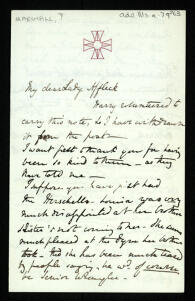 MARSHALL, F
My dear Lady Affleck
Harry volunteered to
carry this note, so I have withdrawn
it from the post —
I want first to thank you for having
been so kind to them — as they
have told me —
I suppose you have just had
the Herschells. Louisa was very
much disappointed at her brother
Sister's not coming to her. She was
much pleased at the Tyne her brother
took. And he has been much teased
by people saying he wd of course
be Senior Wrangler —